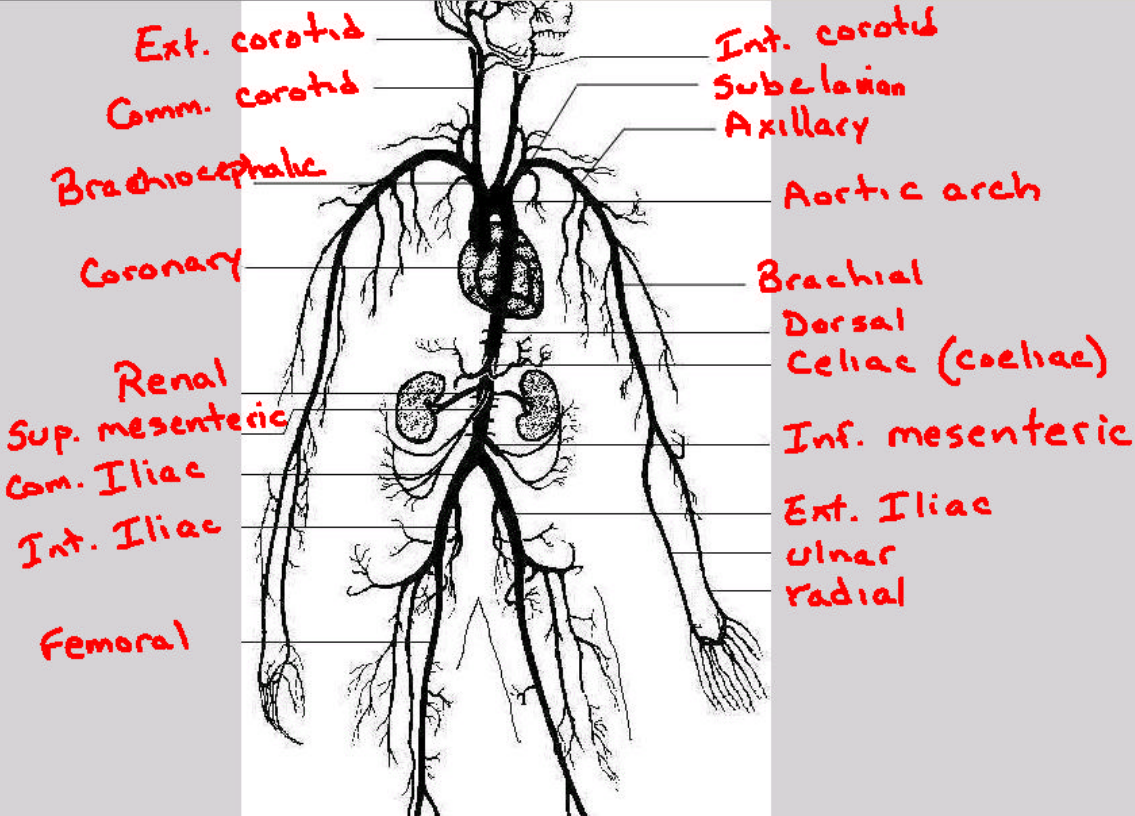 Ext. corotid
Comm. corotid
Brachiocephalic
Coronary
Renal
Sup. mesenteric
Com. Iliac
Int. Iliac
Femoral
Int. corotid
Subclavian
Axillary
Aortic arch
Brachial
Dorsal
Celiac (coeliac)
Inf. mesenteric
Ext. Iliac
ulnar
radial